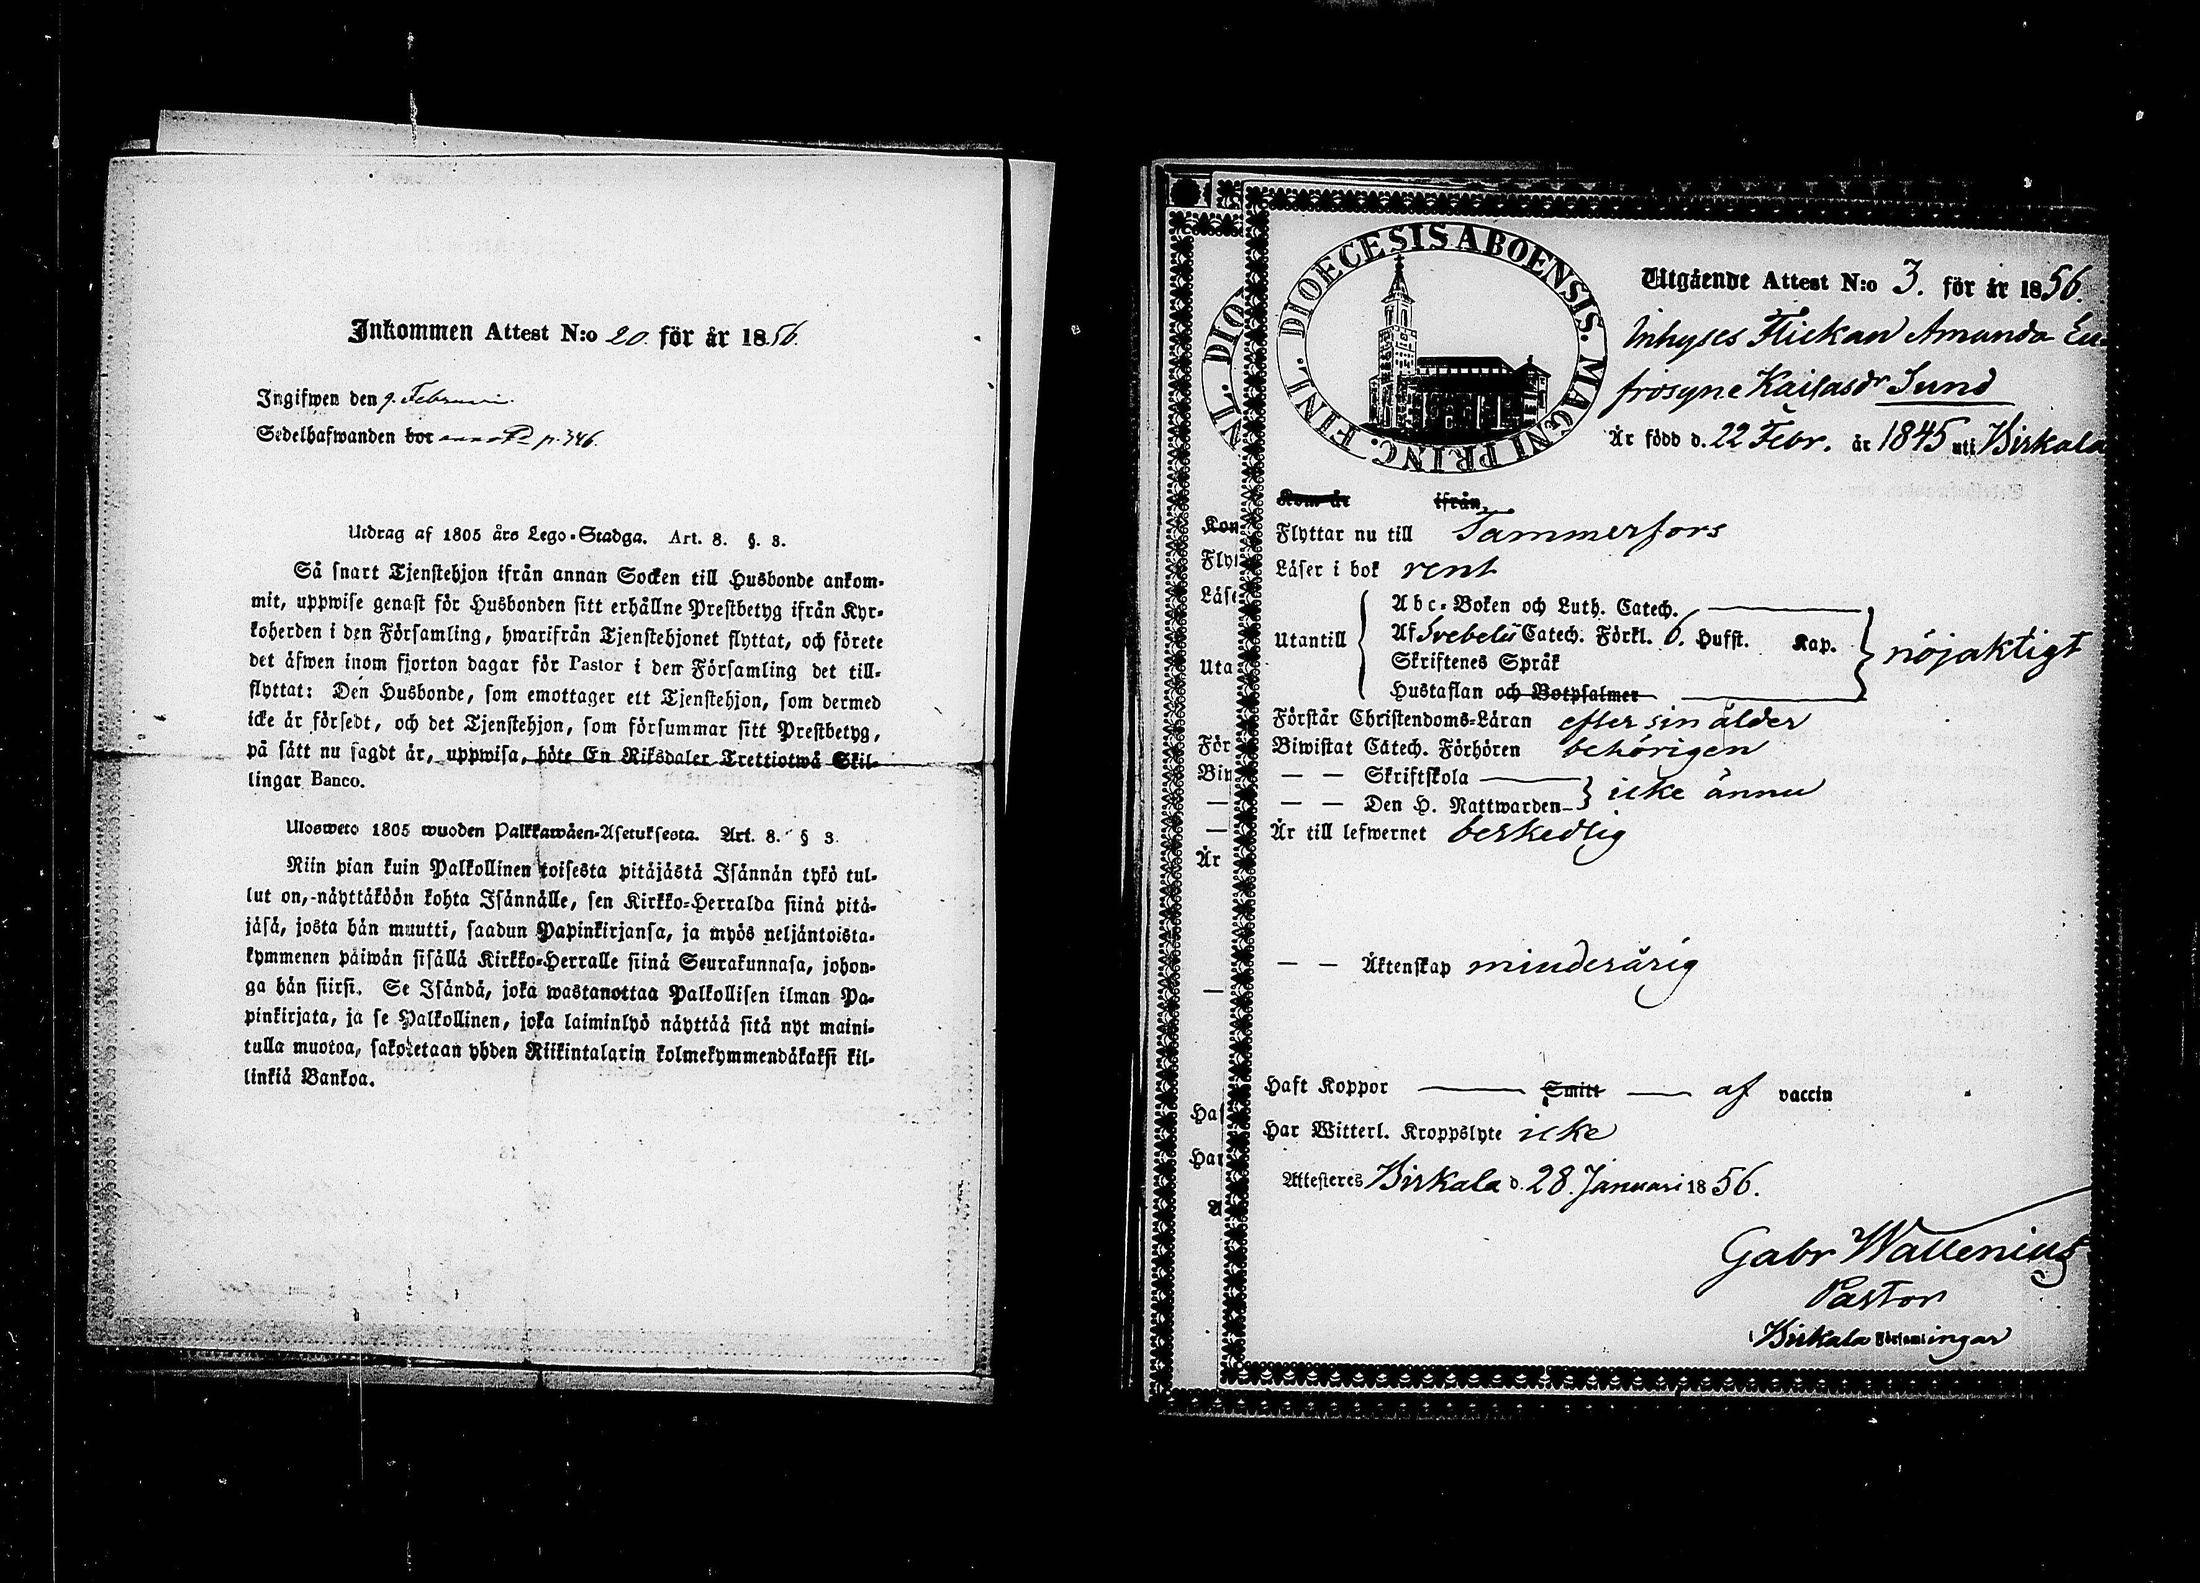 Inkommen Attest N:o 20. för år 1856.
Ingifwen den 9. Februari.
Sedelhafwanden bor p. 346.
Utdrag af 1805 års Lego-Stadga. Art. 8. §. 8.
Så snart Tjenstehjon ifrån annan Socken till Husbonde ankom-
mit, uppwise genast för Husbonden sitt erhållne Prestbetyg ifrån Kyr-
koherden i den Församling, hwarifrån Tjenstehjonet flyttat, och förete
det äfwen inom fjorton dagar för Pastor i den Församling det till-
flyttat: Den Husbonde, som emottager ett Tjenstehjon, som dermed
icke är försedt, och det Tjenstehjon, som försummar sitt Prestbetyg,
på sätt nu sagdt är, uppwisa, böte En Riksdaler Trettiotwå Skil-
lingar Banco.
Ulosweto 1805 wuoden Palkkawäen-Asetuksesta. Art. 8. § 3.
Niin pian kuin Palkollinen toisesta pitäjästä Isännän tykö tul-
lut on, näyttäköön kohta Isännälle, sen Kirkko-Herralda siinä pitä-
jäsä, josta hän muutti, saadun Papinkirjansa, ja myös neljäntoista-
kymmenen päiwän sisällä Kirkko-Herralle siinä Seurakunnasa, johon-
ga hän siirsi. Se Isändä, joka wastanottaa Palkollisen ilman Pa-
pinkirjata, ja se Palkollinen, joka laiminlyö näyttää sitä nyt maini-
tulla muotoa, sakotetaan yhden Riikintalarin kolmekymmendäkaksi kil-
linkiä Bankoa.
DIOECESIS ABOENSIS. MAGNI PRINC. FINL.
Utgående Attest N:o 3. för år 1856.
Inhyses Flickan Amanda Eu-
frosyne Kaisasdr Sund
Är född d. 22 Febr. år 1845 uti Birkala
Kom år ifrån
Flyttar nu till Tammerfors
Läser i bok rent
Utantill
Abc-Boken och Luth. Catech.
Af Svebelii Catech. Förkl. 6. Hufst. Kap.
Skriftenes Språk
Hustaflan och Botpsalmer
nöjaktigt
Förstår Christendoms-Läran efter sin ålder
Biwistat Catech. Förhören behörigen
— — Skriftskola
— — Den H. Nattwarden
icke ännu
Är till lefwernet beskedlig
— — Äktenskap minderårig
Haft Koppor — Smitt — af vaccin
Har Witterl. Kroppslyte icke
Attesteres Birkala d. 28. Januari 1856.
Gabr Wallenius
Pastor
i Birkala Församlingar